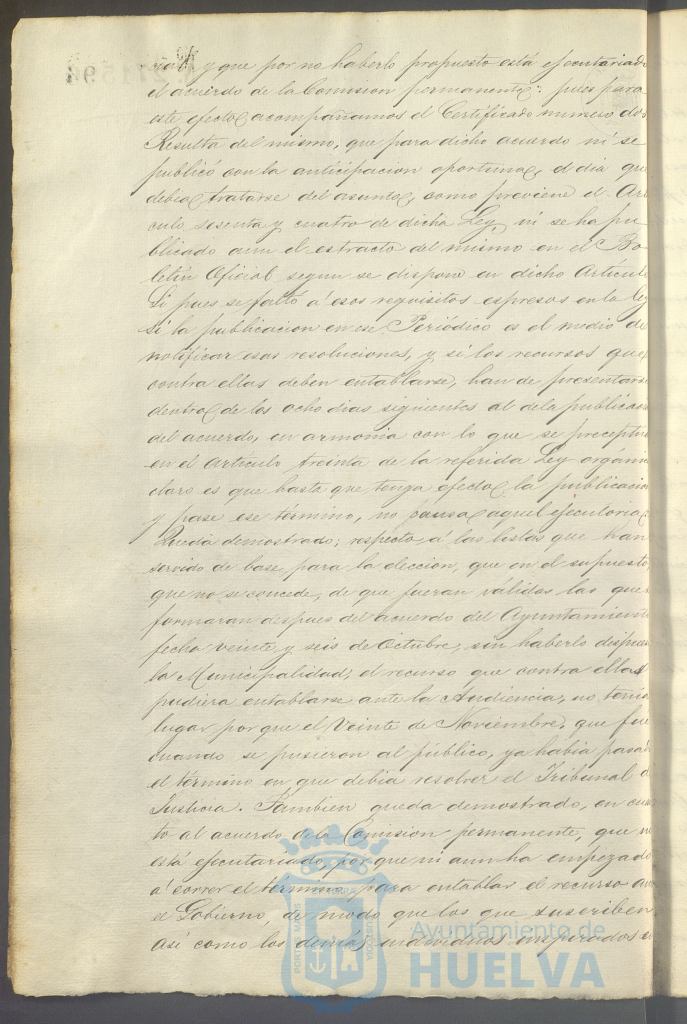 y que por no haberlo propuesto está ejecutoriado
el acuerdo de la Comision permanente: pues para
este efecto acompañamos el Certificado numero dos
Resulta del mismo, que para dicho acuerdo ni se
publicó con la anticipacion oportuna, el dia que
debia tratarse del asunto, como previene el Arti
culo sesenta y cuatro de dicha Ley, ni se ha pu
blicado aun el estracto del mismo en el Bo
letin Oficial segun se dispone en dicho Articulo
Si pues se faltó á esos requisitos espresos en la ley
Si la publicacion en ese Periódico es el medio de
notificar esas resoluciones, y si los recursos que
contra ellas deben entablarse, han de presentarse
dentro de los ocho dias siguientes al de la publicacion
del acuerdo, en armonia con lo que se preceptua
en el articulo treinta de la referida Ley orgánica
claro es que hasta que tenga efecto la publicacion
y pase ese término, no causa aquel ejecutoria.
Queda demostrado; respecto á las listas que han
servido de base para la eleccion, que en el supuesto,
que no se concede, de que fueran válidas las que
formaran despues del acuerdo del Ayuntamiento
fecha veinte y seis de Octubre, sin haberlo dispuesto
la Municipalidad, el recurso que contra ellas
pudiera entablarse ante la Audiencia, no tenia
lugar por que el Veinte de Noviembre, que fue
cuando se pusieron al público, ya habia pasado
el término en que debia resolver el Tribunal de
Justicia. Tambien queda demostrado, en cuan
to al acuerdo de la Comision permanente, que no
está ejecutoriado, por que ni aun ha empezado
á correr el término para entablar el recurso ante
el Gobierno, de modo que los que suscriben
Asi como los demás individuos inspirados en
PORTUS MARIS
Ayuntamiento de
HUELVA